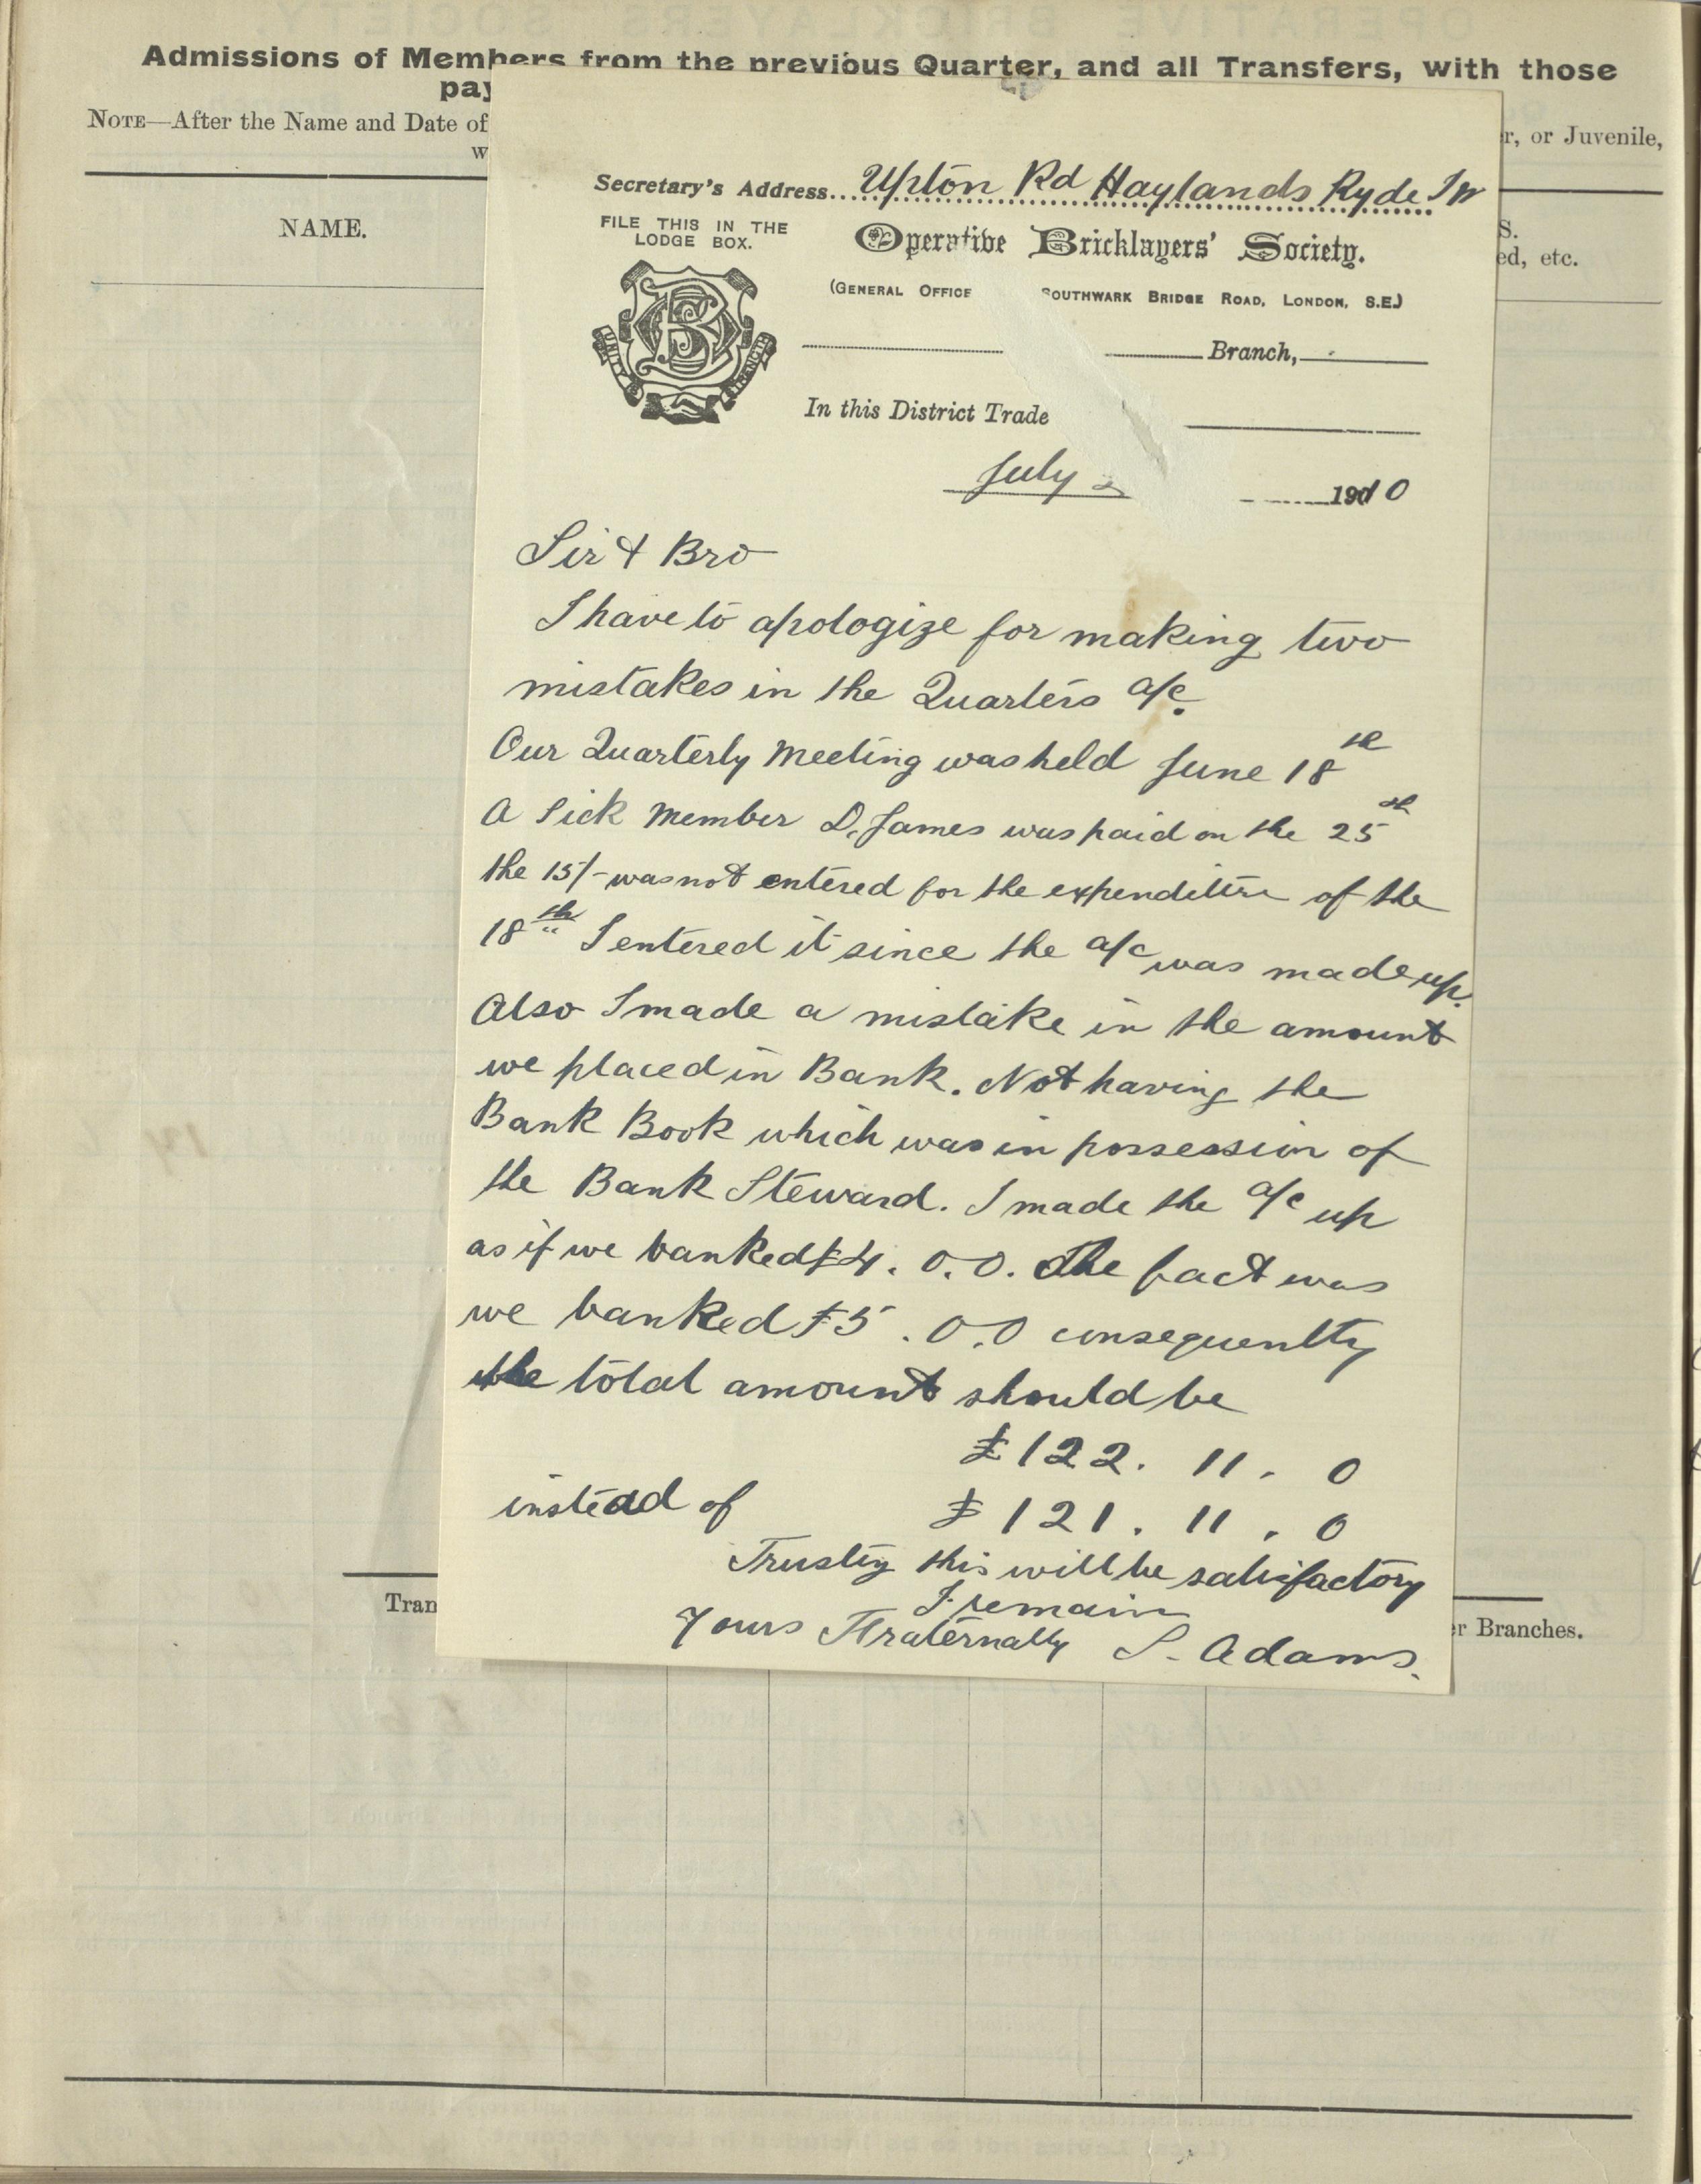 Admissions of Members from the previous Quarter, and all Transfers, with those
pay
NOTE—After the Name and Date of
w
r, or Juvenile,
NAME.
S.
ed, etc.
Secretary's Address... Upton Rd Haylands Ryde IW
FILE THIS IN THE
LODGE BOX.
Operative Bricklayers' Society.
(GENERAL OFFICE SOUTHWARK BRIDGE ROAD, LONDON, S.E.)
OBS
UNITY STRENGTH
Branch,
In this District Trade
July 1910
Sir & Bro
I have to apologize for making two
mistakes in the Quarters a/c.
Our Quarterly Meeting was held June 18th
A Sick Member D. James was paid on the 25th
the 15/- was not entered for the expenditure of the
18th I entered it since the a/c was made up.
Also I made a mistake in the amount
we placed in Bank. Not having the
Bank Book which was in possession of
the Bank Steward. I made the a/c up
as if we banked £4. 0. 0. The fact was
we banked £5. 0. 0 consequently
the total amount should be
£122. 11. 0
instead of £121. 11. 0
Trusting this will be satisfactory
I remain
Yours Fraternally S. Adams.
Tran
er Branches.